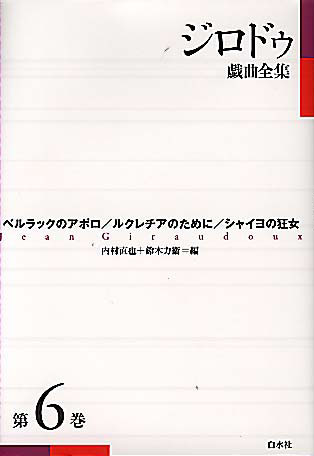 ジロドゥ
戯曲全集
ベルラックのアポロ／ルクレチアのために／シャイヨの狂女
Jean Giraudoux
内村直也＋鈴木力衛＝編
第6巻
白水社